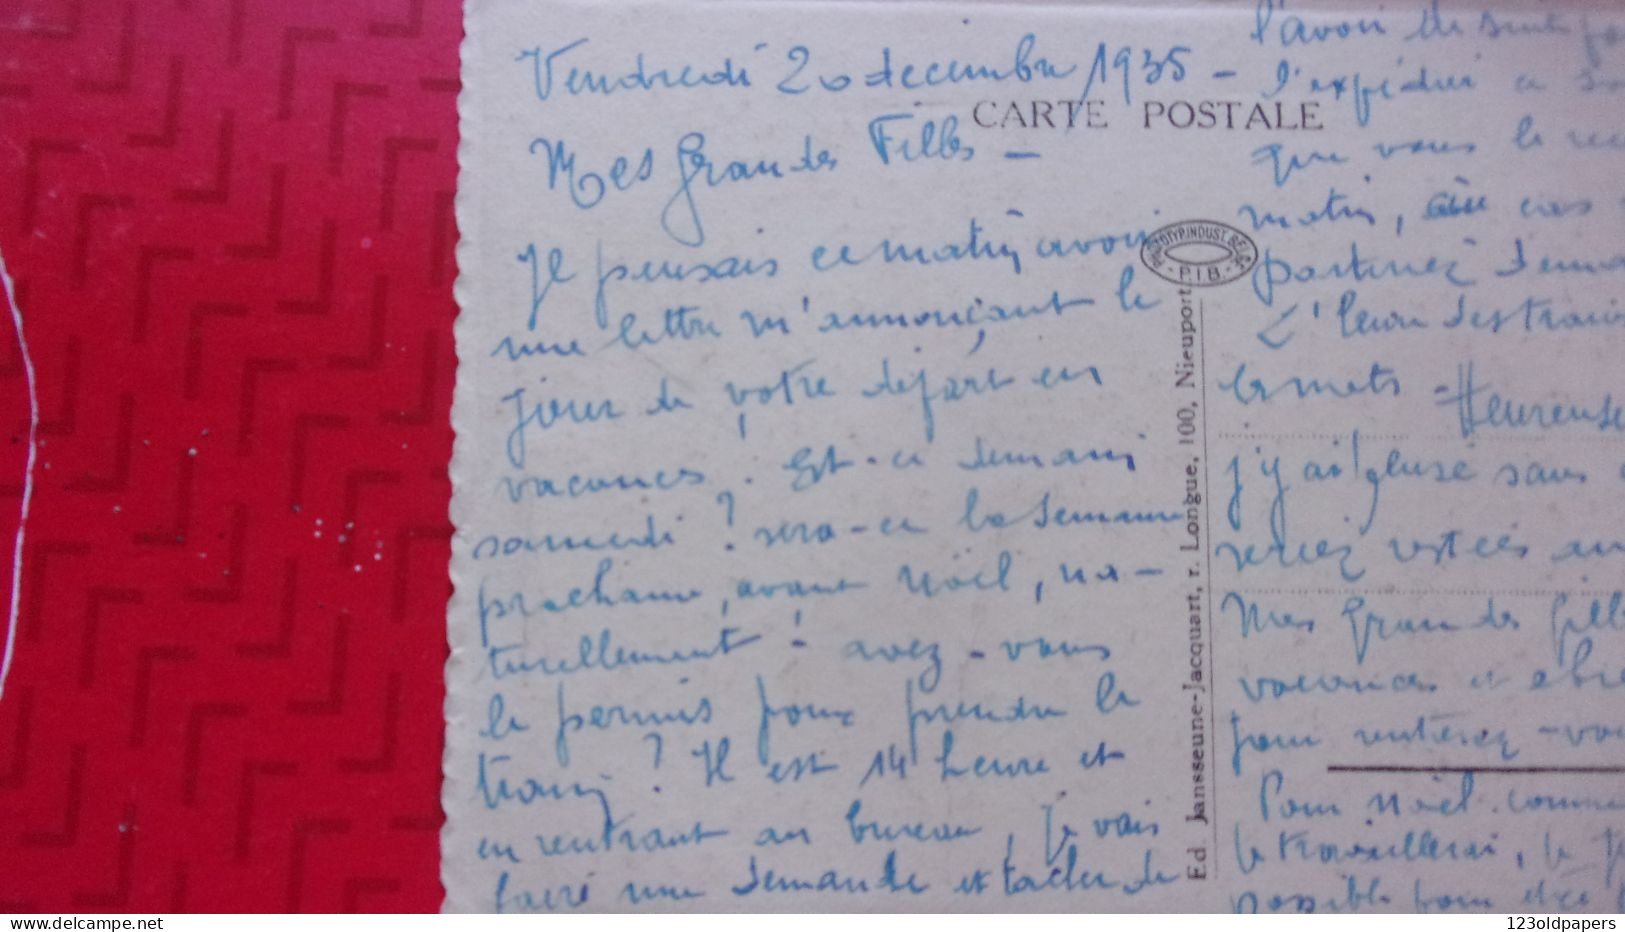 Vendredi 20 decembre 1935 -
CARTE POSTALE
Mes Grandes Filles -
Je pensais ce matin avoir
une lettre m'annonçant le
jour de votre départ en
vacances. Est-ce demain
samedi ? sera-ce la semaine
prochaine, avant Noël, na-
turellement - avez-vous
le permis pour prendre le
train ? Il est 14 heure et
en rentrant au bureau, je vais
faire une demande et tacher de
PHOTOTYP.INDUST.BELGE
- P.I.B. -
Ed. Jansseune-Jacquart, r. Longue, 100, Nieuport
l'avoir de suite
l'expédier a
que vous le
matin, au cas
partiriez
L'heure des
Heureuse
j'y ai sans
seriez
Mes Grandes
vacances
rentrerez-vous
Pour Noël comme
je travaillerai, je
possible pour être
123oldpapers